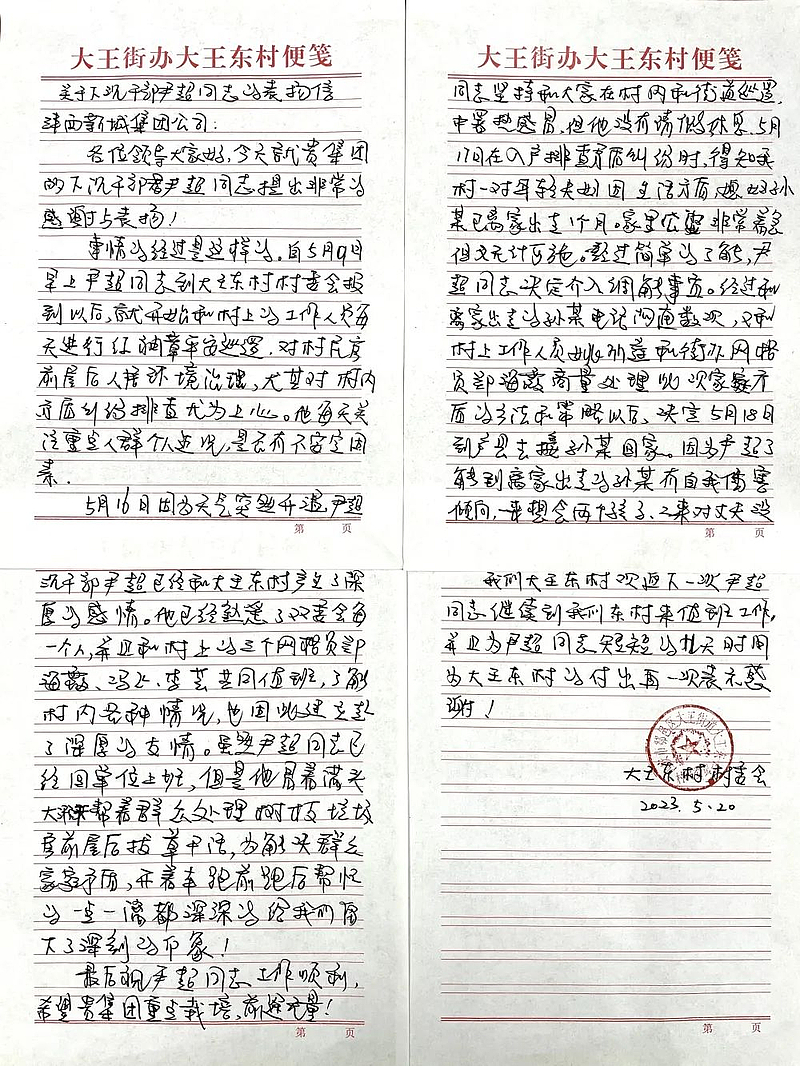 大王街办大王东村便笺
关于下沉干部尹超同志的表扬信
沣西新城集团公司：
各位领导大家好，今天就贵集团
的下沉干部尹超同志提出非常的
感谢与表扬！
事情的经过是这样的。自5月9日
早上尹超同志到大王东村村委会报
到以后，就开始和村上的工作人员每
天进行红袖章平安巡逻，对村民房
前屋后人居环境治理，尤其对村内
矛盾纠纷排查尤为上心。他每天关
注重点人群个人近况，是否有不安定因
素.
5月16日因为天气突然升温，尹超
第 页
大王街办大王东村便笺
同志坚持和大家在村内和街道巡逻，
中暑热感冒，但他没有请假休息。5月
17日在入户排查矛盾纠纷时，得知我
村一对年轻夫妇因生活方面，媳妇孙
某已离家出走1个月。家里公婆非常着急
但又无计可施。经过简单的了解，尹
超同志决定介入调解事宜。经过和
离家出走的孙某电话沟通数次，又和
村上工作人员如此所益和街办网格
员郭海霞商量处理此次家庭矛
盾的方法和策略以后，决定5月18日
到户县去接孙某回家。因为尹超了
解到离家出走的孙某有自我伤害
倾向，一来想念两个孩子、二来对丈夫没
第 页
沉干部尹超已经和大王东村产生了深
厚的感情。他已经熟悉了双委会每
一个人，并且和村上的三个网格员郭
海霞、冯上、李芸共同值班，了解
村内各种情况，也因此建立起
了深厚的友情。虽然尹超同志已
经回单位上班，但是他冒着满头
大汗帮着群众处理树枝垃圾
房前屋后拔草干活，为解决群众
家庭矛盾，开着车跑前跑后帮忙
的一点一滴都深深的给我们留
大了深刻的印象！
最后祝尹超同志工作顺利，
希望贵集团重点栽培，前途无量！
第 页
我们大王东村欢迎下一次尹超
同志继续到我们东村来值班工作，
并且为尹超同志短短的几天时间
为大王东村的付出再一次表示感
谢！
大王东村村委会
2023.5.20
第 页